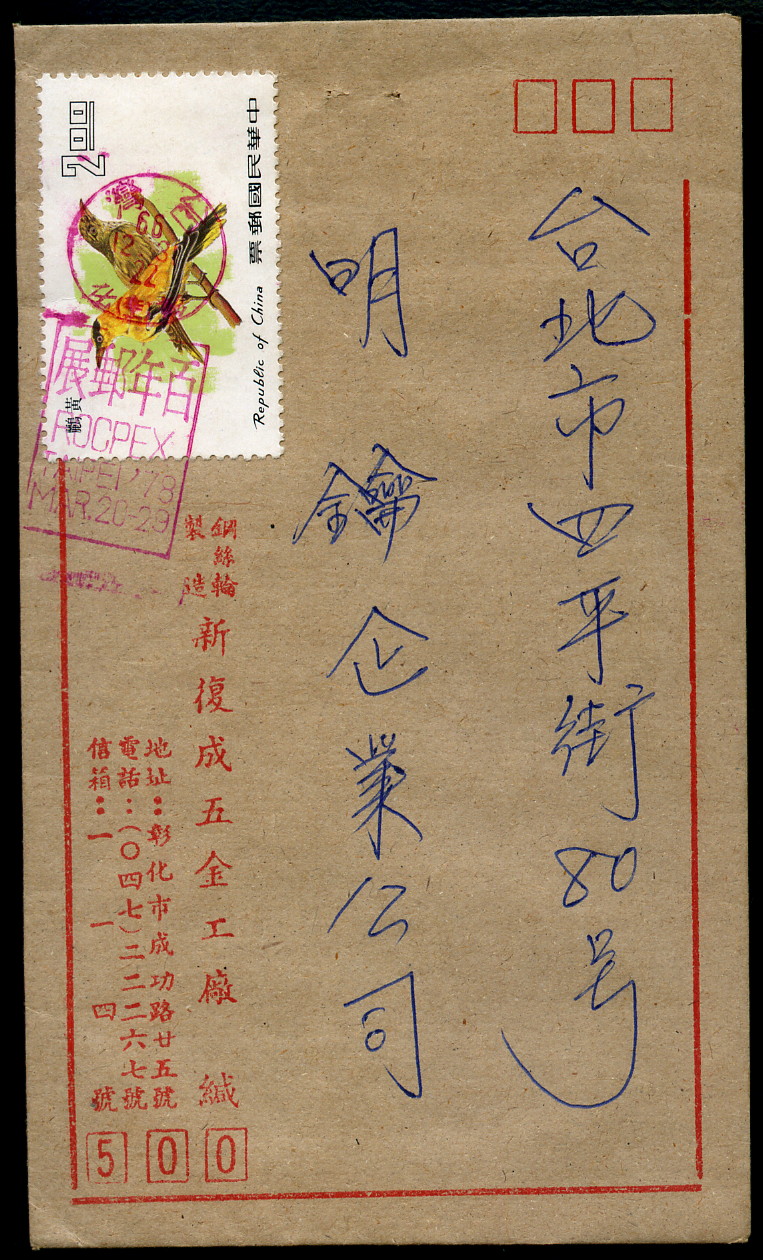 台北市四平街80号
明鑰企業公司
鋼絲輪
製造
新復成五金工廠 緘
地址：彰化市成功路廿五號
電話：（〇四七）二二二六七號
信箱：一一四號
500
中華民國郵票
Republic of China
2.00
黃鸝
百年郵展
ROCPEX
TAIPEI,'78
MAR.20-29